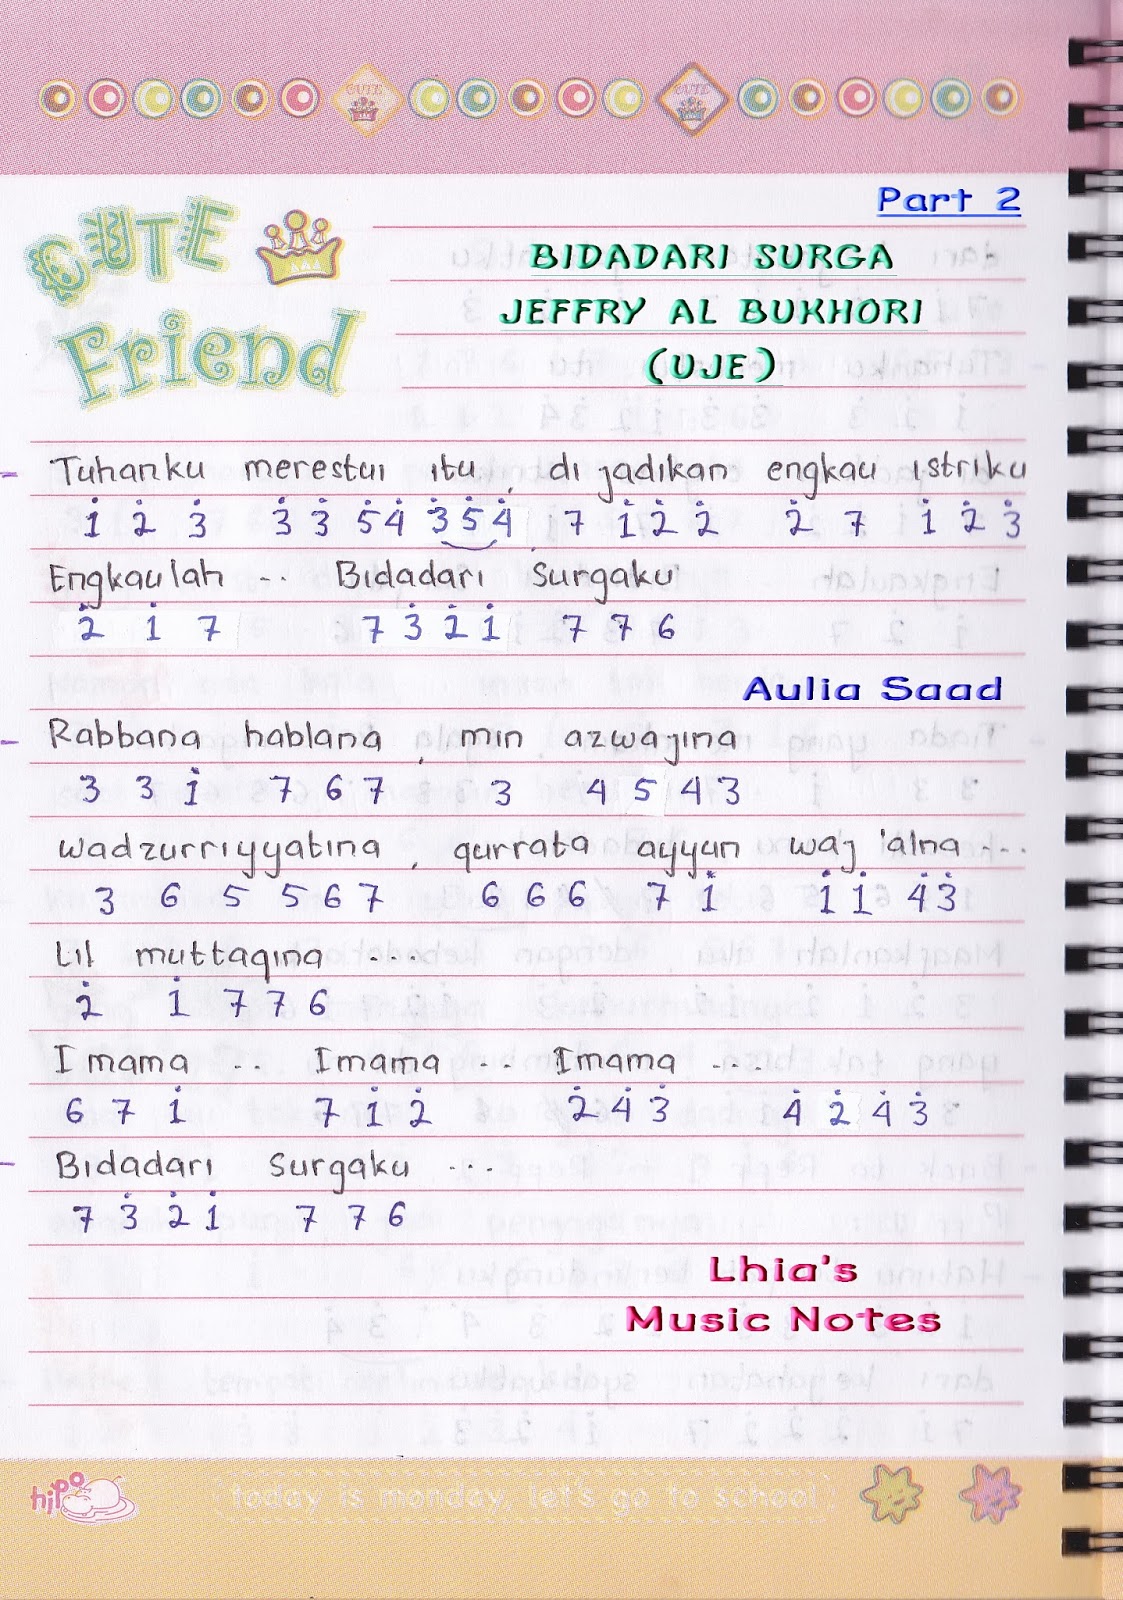 CUTE CUTE
Part 2
CUTE
Friend
BIDADARI SURGA
JEFFRY AL BUKHORI
(UJE)
- Tuhanku merestui itu, di jadikan engkau istriku
1̇ 2̇ 3̇ 3̇ 3̇ 5̇4̇ 3̇5̇4̇ 7 1̇ 2̇ 2̇ 2̇ 7 1̇ 2̇ 3̇
Engkaulah .. Bidadari Surgaku
2̇ 1̇ 7 7 3̇ 2̇ 1̇ 7 7 6
Aulia Saad
- Rabbana hablana, min azwajina
3 3 1̇ 7 6 7 3 4 5 4 3
wadzurriyyatina, qurrata ayyun waj 'alna ...
3 6 5 5 6 7 6 6 6 7 1̇ 1̇ 1̇ 4̇3̇
Lil muttaqina ....
2̇ 1̇ 7 7 6
Imama .. Imama .. Imama ...
6 7 1̇ 7 1̇ 2̇ 2̇ 4̇ 3̇ 4̇ 2̇ 4̇ 3̇
- Bidadari Surgaku ...
7 3̇ 2̇ 1̇ 7 7 6
Lhia's
Music Notes
hipo
today is monday, let's go to school